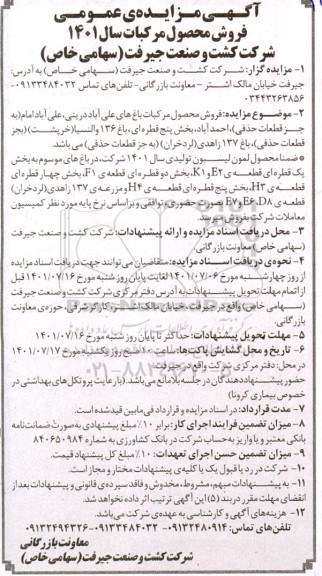 آگهی مزایده‌ی عمومی
فروش محصول مرکبات سال ۱۴۰۱
شرکت کشت و صنعت جیرفت (سهامی خاص)
۱- مزایده گزار: شرکت کشت و صنعت جیرفت (سهامی خاص) به آدرس:
جیرفت خیابان مالک اشتر – معاونت بازرگانی - تلفن‌های تماس ۰۹۱۳۳۴۸۴۰۳۲-
۰۳۴۴۳۲۶۳۸۵۶
۲- موضوع مزایده: فروش محصول مرکبات باغ های علی آباد درینی، علی آباد امام (به
جز قطعات حذفی)، احمد آباد، بخش پنج قطره ای، باغ ۱۳۶ والنسیا (خریشت) (بجز
قطعات حذفی)، باغ ۱۳۷ زاهدی (لردخزان) (به جز قطعات حذفی) می باشد.
*ضمنا محصول لمون لیسبون تولیدی سال ۱۴۰۱ شرکت، در باغ های موسوم به بخش
یک قطره ای قطعه ی E۲ و K۱، بخش دو قطره ای قطعه ی F۱، بخش چهار قطره ای
قطعه ی H۳، بخش پنج قطره ای قطعه ی H۴ و مزرعه ی ۱۳۷ زاهدی (لردخزان)
قطعه ی E۶،D۸ و E۷ بصورت حضوری، توافقی و براساس نرخ پایه مورد نظر کمیسیون
معاملات شرکت بفروش میرسد.
۳- محل دریافت اسناد مزایده و ارائه پیشنهادات: شرکت کشت و صنعت جیرفت
(سهامی خاص) معاونت بازرگانی.
۴- نحوه‌ی دریافت اسناد مزایده: متقاضیان می توانند جهت دریافت اسناد مزایده
از روز چهارشنبه مورخ ۱۴۰۱/۰۷/۰۶ لغایت پایان روز شنبه مورخ ۱۴۰۱/۰۷/۱۶ قبل
از اتمام مهلت تحویل پیشنهادات به آدرس دفتر مرکزی شرکت کشت و صنعت جیرفت
(سهامی خاص) واقع در جیرفت، خیابان مالک اشتر، کارگر شرقی، حوزه ی معاونت
بازرگانی.
۵- مهلت تحویل پیشنهادات: حداکثر تا پایان روز شنبه مورخ ۱۴۰۱/۰۷/۱۶
۶- تاریخ و محل گشایش پاکت ها: ساعت ۱۰ صبح روز یکشنبه مورخ ۱۴۰۱/۰۷/۱۷
در محل: دفتر مرکزی شرکت واقع در جیرفت.
حضور پیشنهاددهندگان در جلسه بلامانع می باشد. (با رعایت پروتکل های بهداشتی در
خصوص بیماری کرونا)
۷- مدت قرارداد: در اسناد مزایده و قرارداد فی مابین قید شده است.
۸- میزان تضمین فرایند اجرای کار: برابر ۱۰٪ مبلغ پیشنهادی به صورت ضمانت نامه
بانکی معتبر و یا واریز به حساب شرکت در بانک کشاورزی به شماره ۸۴۰۶۵۰۹۸۴
۹- میزان تضمین حسن اجرای تعهدات: ۱۰٪ مبلغ کل پیشنهاد قیمت.
۱۰- شرکت در رد یا قبول یک یا کلیه ی پیشنهادات مختار و مجاز است.
۱۱- به پیشنهادات مبهم، مشروط، مخدوش و فاقد سپرده ی قانونی و پیشنهادات بعد از
انقضای مهلت مقرر در بند (۵) این آگهی ترتیب اثر داده نخواهد شد.
۱۲- هزینه های آگهی و کارشناسی به عهده ی شرکت می باشد.
تلفن های تماس: ۰۹۱۳۲۴۸۰۹۱۴-۰۹۱۳۳۴۸۴۰۳۲-۰۹۱۳۲۴۹۴۳۲۶
معاونت بازرگانی
شرکت کشت و صنعت جیرفت (سهامی خاص)